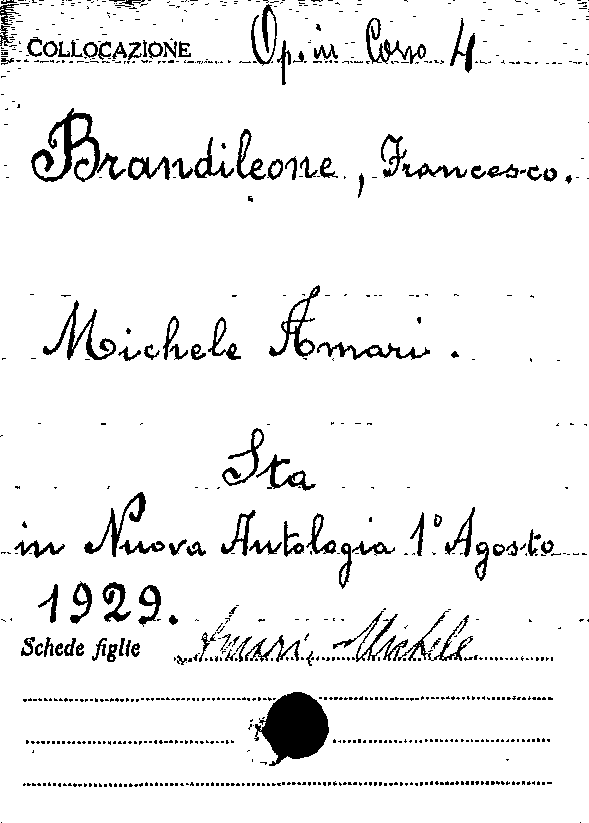 COLLOCAZIONE Op. in Corso 4
Brandileone, Francesco.
Michele Amari.
Sta
in Nuova Antologia 1° Agosto
1929.
Schede figlie Amari, Michele